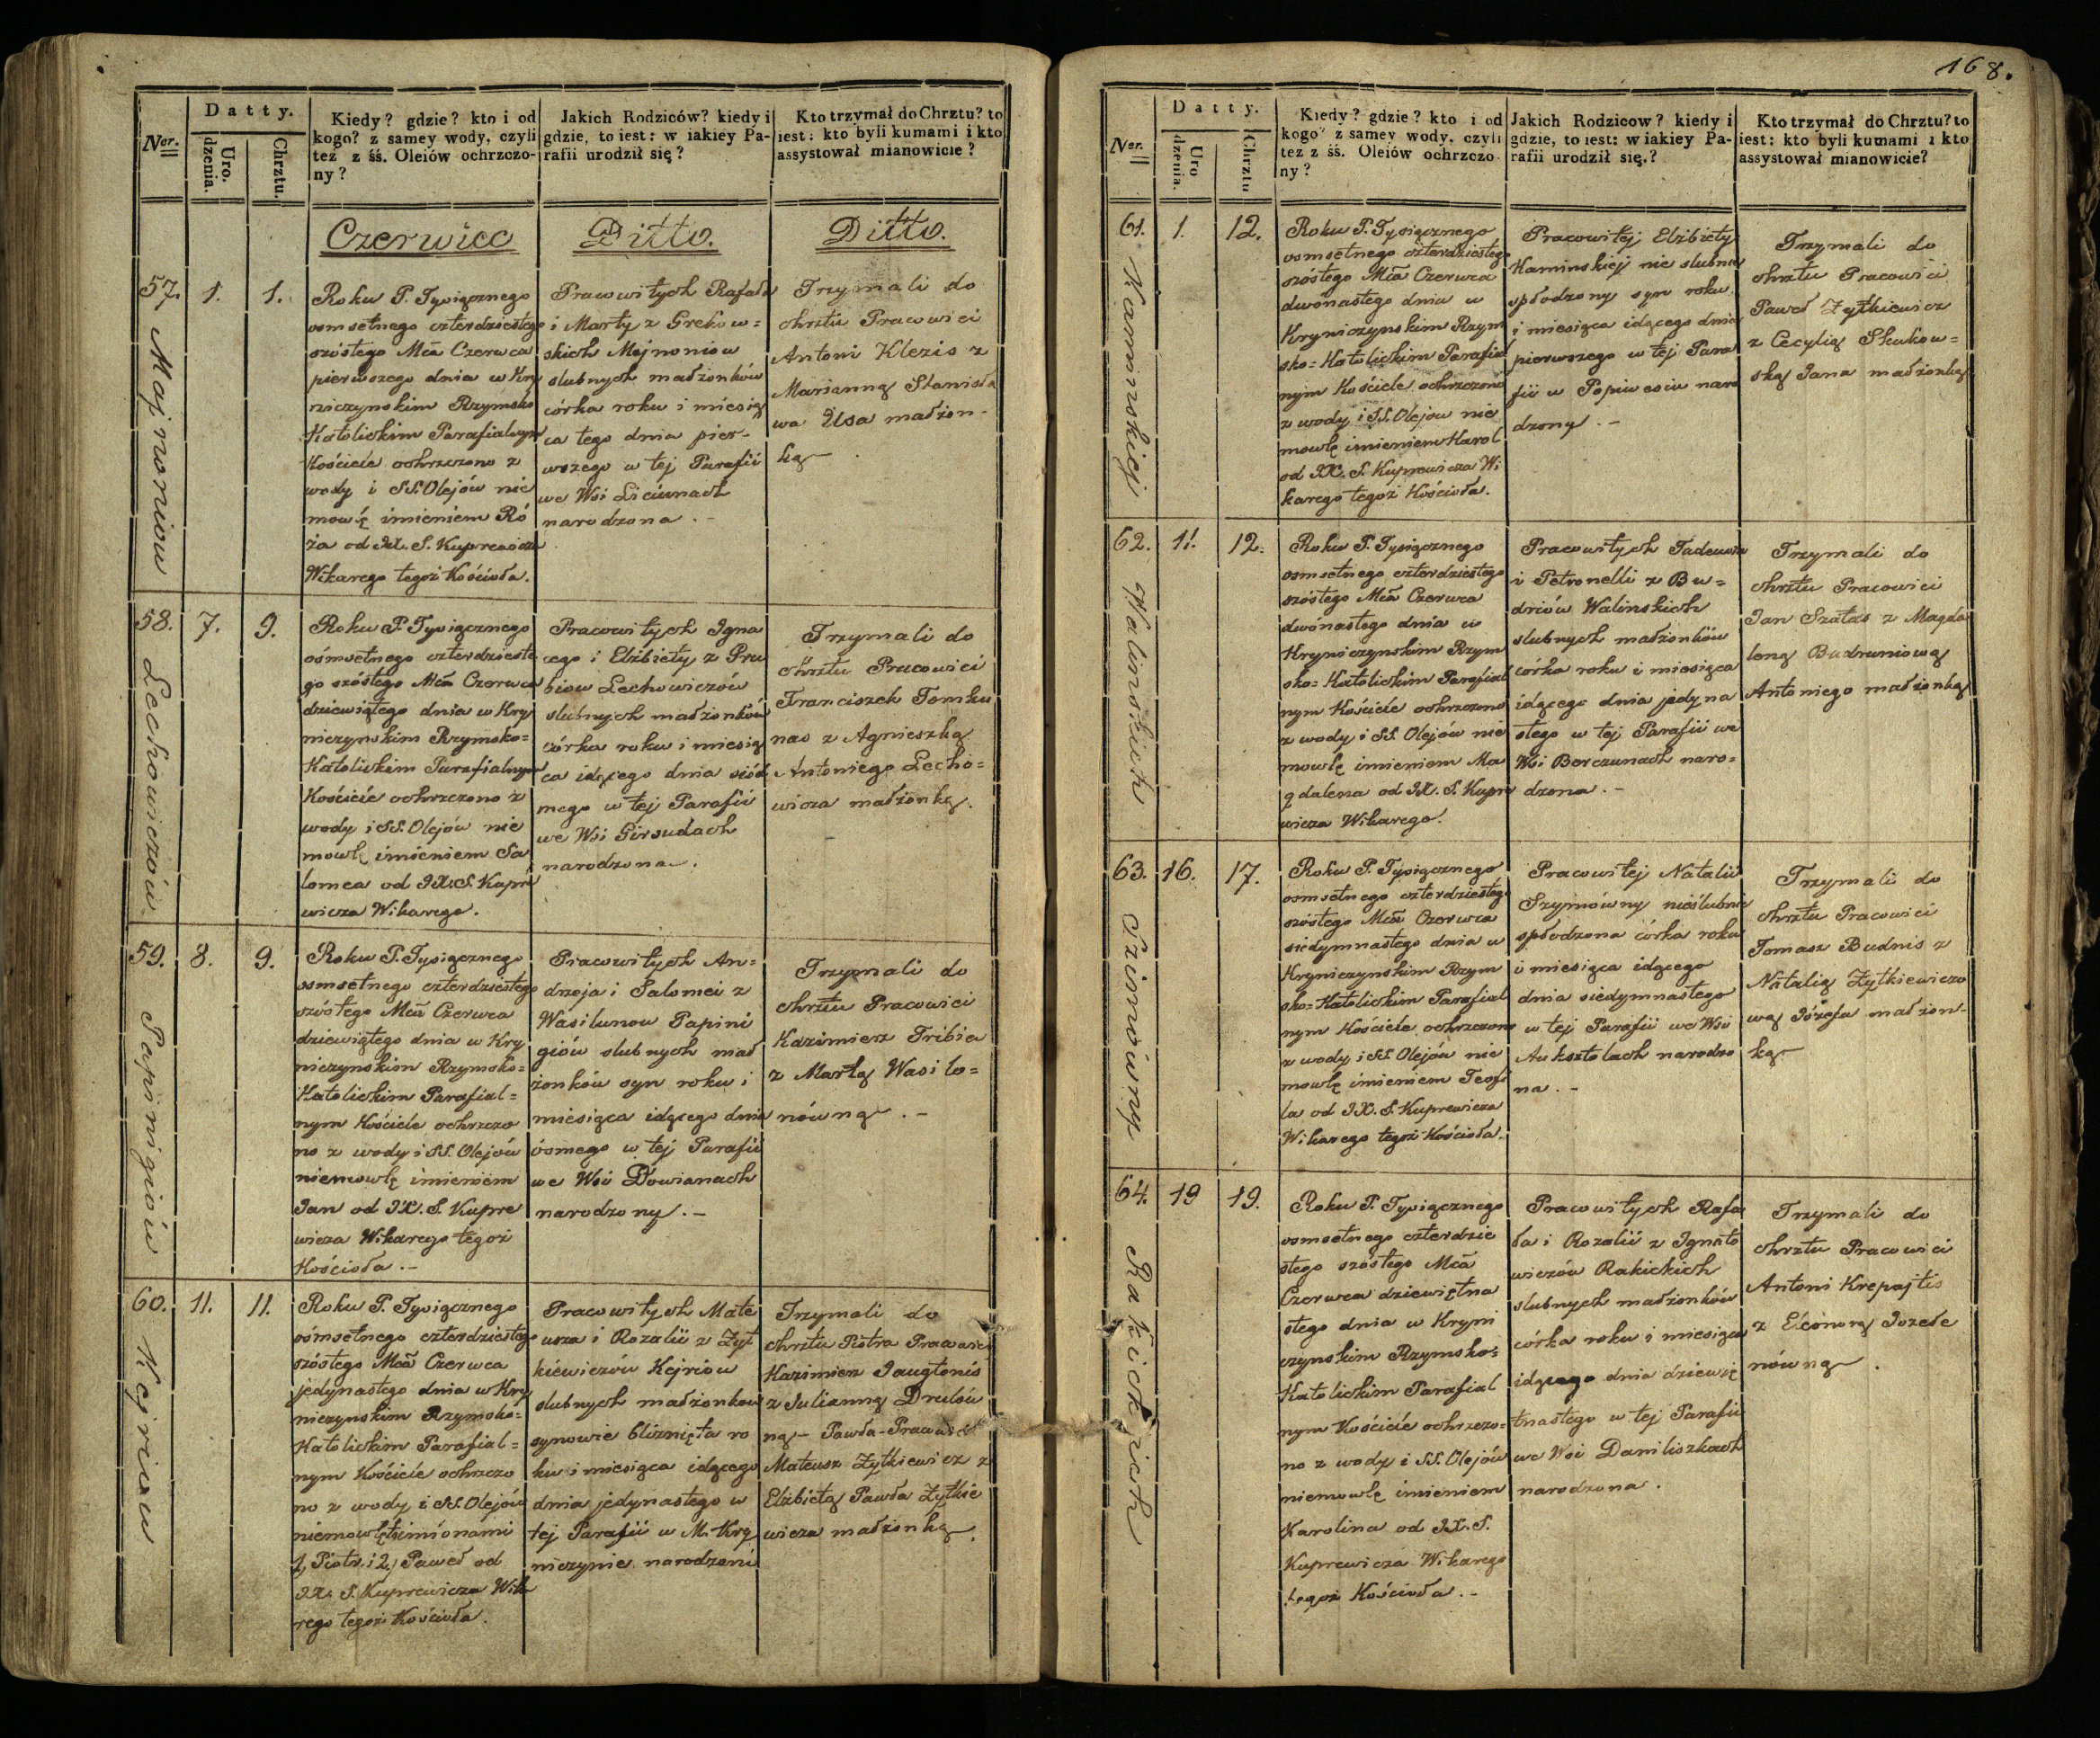 168.
Ner.
Datty.
Uro.
dzenia.
Chrztu.
Kiedy? gdzie? kto i od
kogo? z samey wody, czyli
też z śś. Oleiów ochrzczo-
ny?
Jakich Rodziców? kiedy i
gdzie, to iest: w iakiey Pa-
rafii urodził się?
Kto trzymał do Chrztu? to
iest: kto byli kumami i kto
assystował mianowicie?
Czerwiec
Ditto.
Ditto.
57.
Majnoniow
1.
1.
Roku P. Tysiącznego
osmsetnego czterdziestego
szóstego Mca Czerwca
pierwszego dnia w Kry
niczynskim Rzymsko
Katolickim Parafialnym
Kościele ochrzczono z
wody i SS. Olejów nie
mowlę imieniem Ró
ża od JX. S. Kuprewicza
Wikarego tegoż Kościoła.
Pracowitych Rafała
i Marty z Grekow=
skich Majnoniow
slubnych małżonków
córka roku i miesią
ca tego dnia pier-
wszego w tej Parafii
we Wsi Liciunach
narodzona.-
Trzymali do
chrztu Pracowici
Antoni Klezis z
Marianną Stanisła
wa Usa małżon-
ką
58.
Lechowiczów
7.
9.
Roku P. Tysiącznego
ośmsetnego czterdzieste
go szóstego Mca Czerwca
dziewiątego dnia w Kry
niczynskim Rzymsko=
Katolickim Parafialnym
Kościele ochrzczono z
wody i SS. Olejów nie
mowlę imieniem Sa
lomea od JX. S. Kupre
wicza Wikarego.
Pracowitych Igna
cego i Elżbiety z Pru
biow Lechowiczów
slubnych małżonków
córka roku i miesią
ca idącego dnia siód
mego w tej Parafii
we Wsi Girsudach
narodzona.
Trzymali do
chrztu Pracowici
Franciszek Tomku
nas z Agnieszką
Antoniego Lecho=
wicza małżonką.
59.
Papinigiów
8.
9.
Roku P. Tysiącznego
osmsetnego czterdziestego
szóstego Mca Czerwca
dziewiątego dnia w Kry
niczynskim Rzymsko=
Katolickim Parafial=
nym Kościele ochrzczo
no z wody i SS. Olejów
niemowlę imieniem
Jan od JX. S. Kupre
wicza Wikarego tegoż
Kościoła.-
Pracowitych An=
drzeja i Salomei z
Wasilunow Papini
giów slubnych mał
żonków syn roku i
miesiąca idącego dnia
ósmego w tej Parafii
we Wsi Dowianach
narodzony.-
Trzymali do
chrztu Pracowici
Kazimierz Tribia
z Martą Wasilo=
nówną.-
60.
Kejriow
11.
11.
Roku P. Tysiącznego
ósmsetnego czterdziestego
szóstego Mca Czerwca
jedynastego dnia w Kry
niczynskim Rzymsko=
Katolickim Parafial=
nym Kościele ochrzczo
no z wody i SS. Olejów
niemowlęta imionami
1, Piotr, i 2, Paweł od
JX. S. Kuprewicza Wika
rego tegoż Kościoła.
Pracowitych Mate
usza i Rozalii z Żyt
kiewiczów Kejriow
slubnych małżonkow
synowie bliznięta ro
ku i miesiąca idącego
dnia jedynastego w
tej Parafii w M. Kry
niczynie narodzeni
Trzymali do
chrztu Piotra Pracowici
Kazimierz Jaugtonis
z Julianną Drulów
ną - Pawła - Pracowici
Mateusz Żytkiewicz z
Elżbietą Pawła Żytkie
wicza małżonką.
Ner.
Datty.
Uro
dzenia.
Chrztu
Kiedy? gdzie? kto i od
kogo? z samey wody, czyli
też z śś. Oleiów ochrzczo-
ny?
Jakich Rodzicow? kiedy i
gdzie, to iest: w iakiey Pa-
rafii urodził się.?
Kto trzymał do Chrztu? to
iest: kto byli kumami i kto
assystował mianowicie?
61.
Kaminskiej
1.
12.
Roku P. Tysiącznego
osmsetnego czterdziestego
szóstego Mca Czerwca
dwónastego dnia w
Kryniczynskim Rzym
sko=Katolickim Parafial
nym Kościele ochrzczono
z wody i SS. Olejow nie
mowlę imieniem Karol
od JX. S. Kuprewicza Wi
karego tegoż Kościoła.
Pracowitej Elżbiety
Kaminskiej nie slubnie
spłodzony syn roku
i miesiąca idącego dnia
pierwszego w tej Para
fii w Popiwesiu naro
dzony.-
Trzymali do
chrztu Pracowici
Paweł Żytkiewicz
z Cecylią Skukow=
ską Jana małżonką
62.
Walinskich
11.
12.
Roku P. Tysiącznego
osmsetnego czterdziestego
szóstego Mca Czerwca
dwónastego dnia w
Kryniczynskim Rzym
sko=Katolickim Parafial
nym Kościele ochrzczono
z wody i SS. Olejów nie
mowlę imieniem Ma
gdalena od JX. S. Kupre
wicza Wikarego.
Pracowitych Tadeusza
i Petronelli z Bu=
driów Walinskich
slubnych małżonków
córka roku i miesiąca
idącego dnia jedyna
stego w tej Parafii we
Wsi Berczunach naro=
dzona.-
Trzymali do
chrztu Pracowici
Jan Szatas z Magda
leną Budruniową
Antoniego małżonką
63.
Szimówny
16.
17.
Roku P. Tysiącznego
osmsetnego czterdziestego
szóstego Mca Czerwca
siedymnastego dnia w
Kryniczynskim Rzym
sko=Katolickim Parafial
nym Kościele ochrzczono
z wody i SS. Olejów nie
mowlę imieniem Teofi
la od JX. S. Kuprewicza
Wikarego tegoż Kościoła.
Pracowitej Natalii
Szymówny nieślubnie
spłodzona córka roku
i miesiąca idącego
dnia siedymnastego
w tej Parafii we Wsi
Auksztolach narodzo
na.-
Trzymali do
chrztu Pracowici
Tomasz Budnis z
Natalią Żytkiewiczo
wą Józefa małżon-
ką
64.
Rakickich
19
19.
Roku P. Tysiącznego
osmsetnego czterdzie
stego szóstego Mca
Czerwca dziewiętna
stego dnia w Kryni
czynskim Rzymsko=
Katolickim Parafial
nym Kościele ochrzczo=
no z wody i SS. Olejów
niemowlę imieniem
Karolina od JX. S.
Kuprewicza Wikarego
tegoż Kościoła.-
Pracowitych Rafa
ła i Rozalii z Ignato
wiczów Rakickich
slubnych małżonków
córka roku i miesiąca
idącego dnia dziewię
tnastego w tej Parafii
we Wsi Daniliszkach
narodzona.
Trzymali do
chrztu Pracowici
Antoni Krepajtis
z Eleonorą Jozele
nówną.